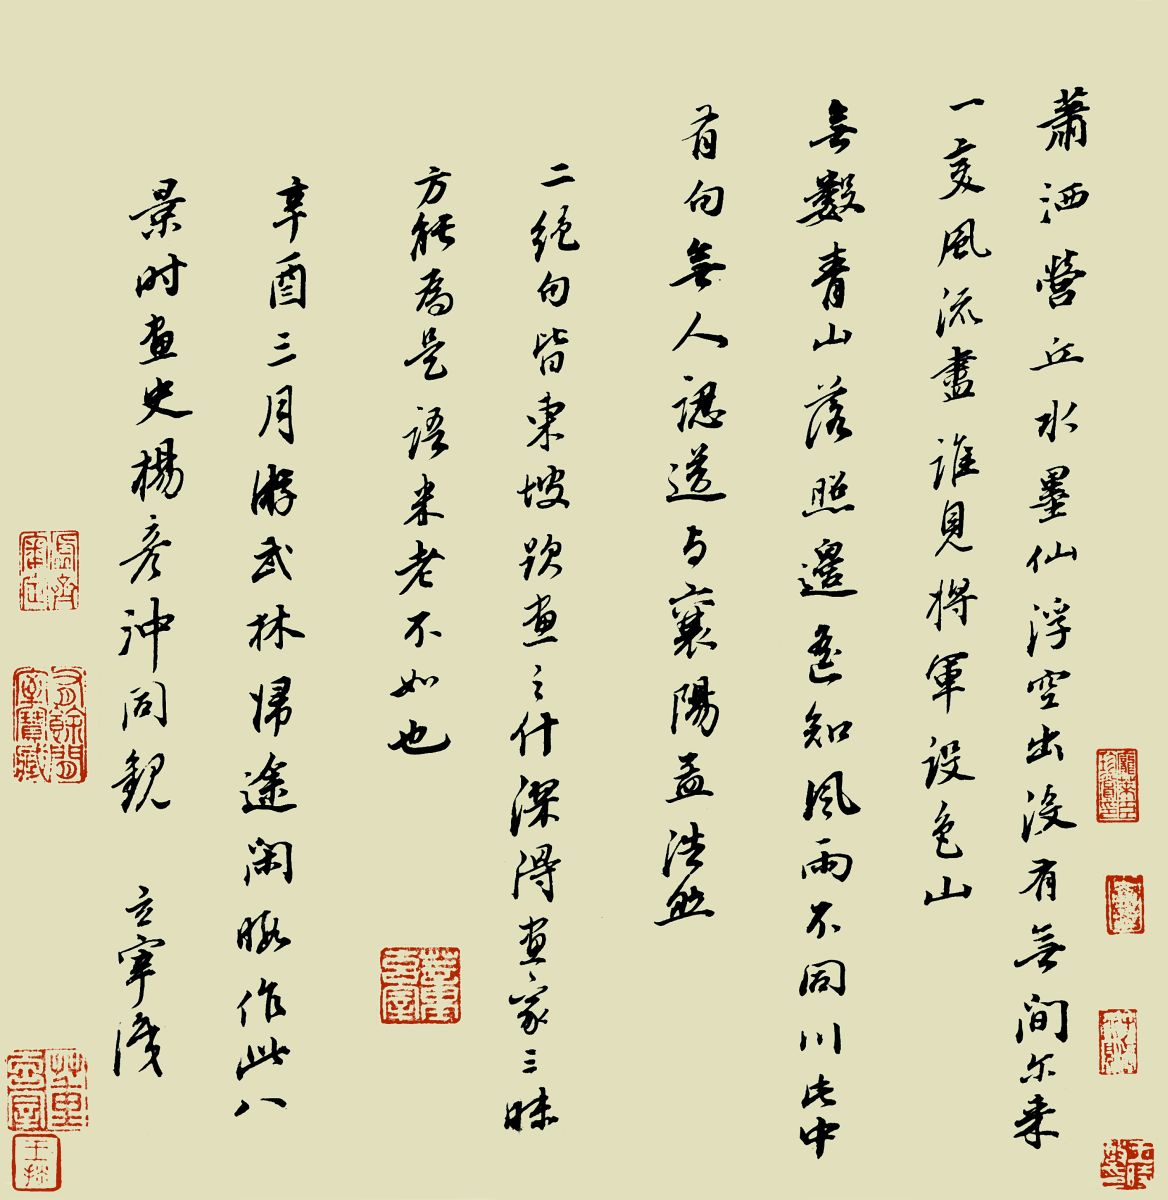 蕭洒營丘水墨仙浮空出沒有無間尔来
一變風流盡誰見將軍設色山
無數青山落照邊遙知風雨不同川此中
有句無人識送与襄陽孟浩然
二絕句皆東坡題畫之什深得畫家三昧
方能為是語米老不如也
辛酉三月游武林歸途閑暇作此八
景时畫史楊彥冲同觀 玄宰識
龐萊臣珍賞印
虛齋審定
有餘閒室寶藏
王掞